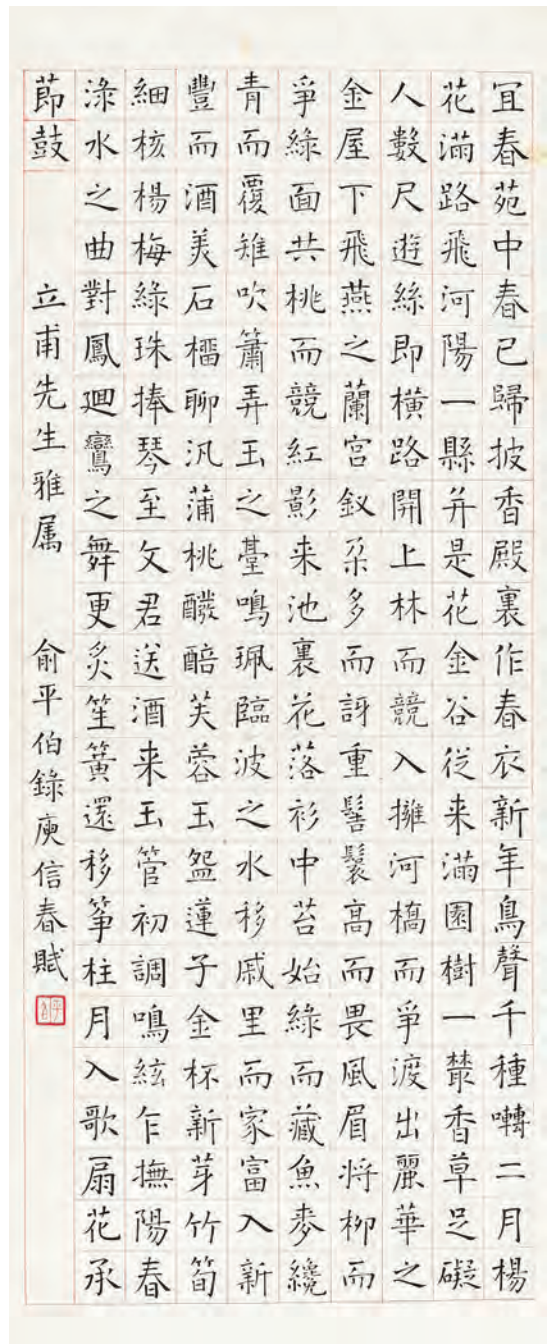 宜春苑中春已歸披香殿裏作春衣新年鳥聲千種囀二月楊
花滿路飛河陽一縣并是花金谷從来滿園樹一叢香草足礙
人數尺遊絲即橫路開上林而競入擁河橋而爭渡出麗華之
金屋下飛燕之蘭宮釵朵多而訝重髻鬟高而畏風眉将柳而
爭綠面共桃而競紅影来池裏花落衫中苔始綠而藏魚麥纔
青而覆雉吹簫弄玉之臺鳴珮臨波之水移戚里而家富入新
豐而酒美石榴聊汎蒲桃醱醅芙蓉玉盌蓮子金杯新芽竹筍
細核楊梅綠珠捧琴至文君送酒来玉管初調鳴絃乍撫陽春
淥水之曲對鳳迴鸞之舞更炙笙簧還移箏柱月入歌扇花承
節鼓
立甫先生雅属 俞平伯錄庾信春賦
平伯